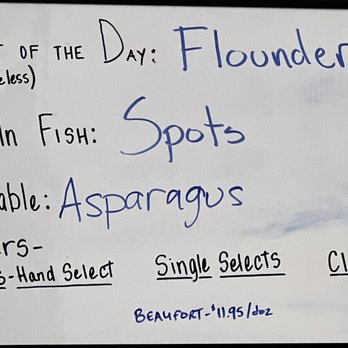 OF THE DAY: Flounder
eless)
In FISH: Spots
able: Asparagus
ers-
s-Hand Select Single Selects Cl
BEAUFORT-$11.95/doz